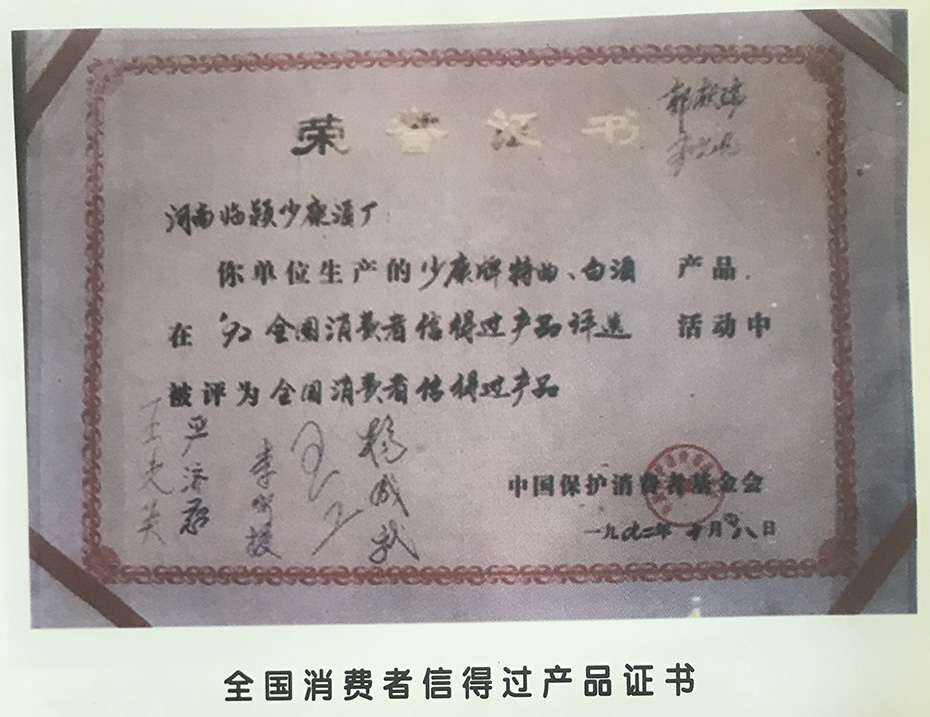 荣誉证书
河南临颍少康酒厂
你单位生产的少康牌特曲、白酒 产品.
在 92全国消费者信得过产品评选 活动中
被评为全国消费者信得过产品
严济慈
杨成武
中国保护消费者基金会
一九九二年十月 八日
全国消费者信得过产品证书